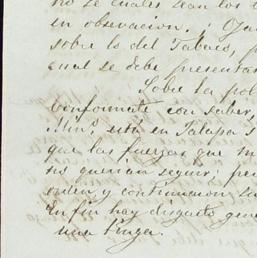 no se cuales sean los
en observacion. ¡Oja
sobre lo del Tabaco, p
cual se debe presenta
Sobre la pol
conformate con saber,
Minº esta en Jalapa
que las fuerzas que m
no querian seguir: pe
orden y continuacion
En fin hay disgusto gene
una tinga.